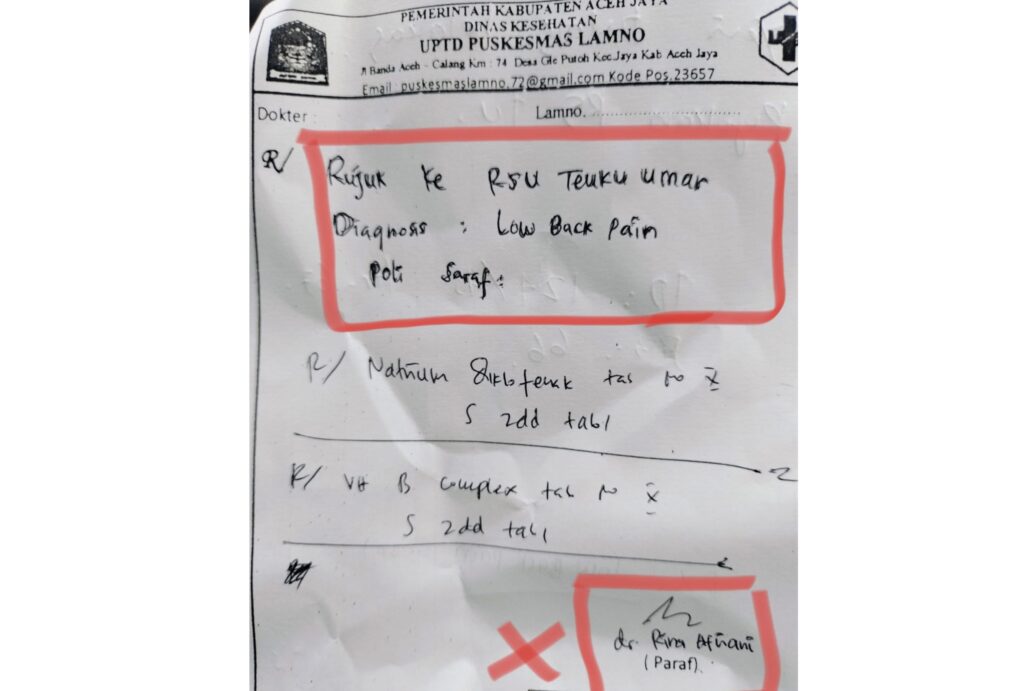 PEMERINTAH KABUPATEN ACEH JAYA
DINAS KESEHATAN
UPTD PUSKESMAS LAMNO
Jl Banda Aceh - Calang Km : 74 Desa Gle Putoh Kec.Jaya Kab Aceh Jaya
Email : puskesmaslamno.72@gmail.com Kode Pos.23657
Dokter :
Lamno. ..............................
R/ Rujuk ke RSU Teuku Umar
Diagnosis : Low Back Pain
Poli Saraf :
R/ Natrium Diklofenak tab No X
S 2dd tab 1
R/ Vit B Complex tab No X
S 2dd tab 1
dr. Rina Afriani
(Paraf).